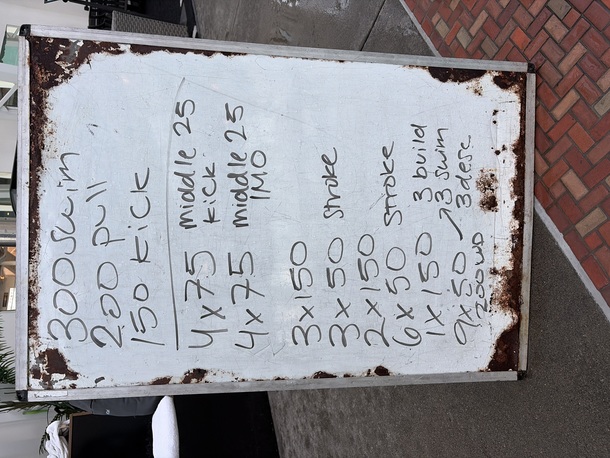 300 swim
200 pull
150 kick
4 x 75 middle 25 kick
4 x 75 middle 25 IMO
3 x 150
3 x 50 stroke
2 x 150
6 x 50 stroke
1 x 150 3 build
9 x 50 → 3 swim
200 WD 3 desc